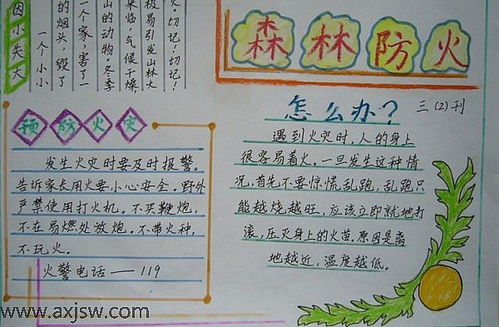 因小失大
火，切记！切记！
极易引发山林大
来临，气候干燥
山的动物。冬季
一个家，害了一
的烟头，毁了
一个小小
森林防火
三（2）刊
预防火灾
发生火灾时要及时报警。
告诉家长用火要小心安全。野外
严禁使用打火机。不买鞭炮，
不在易燃处放炮。不带火种，
不玩火。
火警电话——119
怎么办？
遇到火灾时，人的身上
很容易着火。一旦发生这种情
况，首先不要惊慌乱跑，乱跑只
能越烧越旺，应该立即就地打
滚，压灭身上的火苗，原因是离
地越近，温度越低。
www.axjsw.com